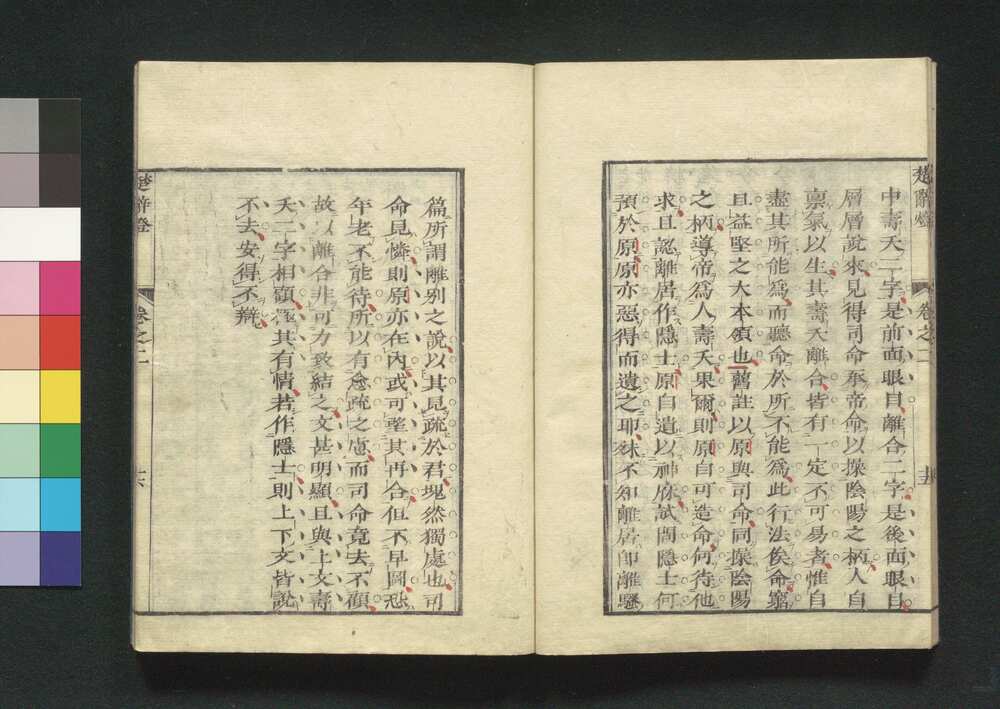 楚辭燈
卷之二
十五
中壽夭二字是前面眼目離合二字是後面眼目
層層說來見得司命奉帝命以操陰陽之柄人自
稟氣以生其壽夭離合皆有一定不可易者惟自
盡其所能爲而聽命於所不能爲此行法俟命窮
且益堅之大本領也舊註以原與司命同操陰陽
之柄導帝爲人壽夭果爾則原自可造命何待他
求且認離居作隱士原自遺以神麻試問隱士何
預於原原亦惡得而遺之耶殊不知離居卽離騷
篇所謂離別之說以其見疏於君塊然獨處也司
命見憐則原亦在內或可望其再合但不早圖恐
年老不能待所以有愈疏之慮而司命竟去不顧
故以離合非可力致結之文甚明顯且與上文壽
夭二字相顧極其有情若作隱士則上下文皆說
不去安得不辯
楚辭燈
卷之二
十六